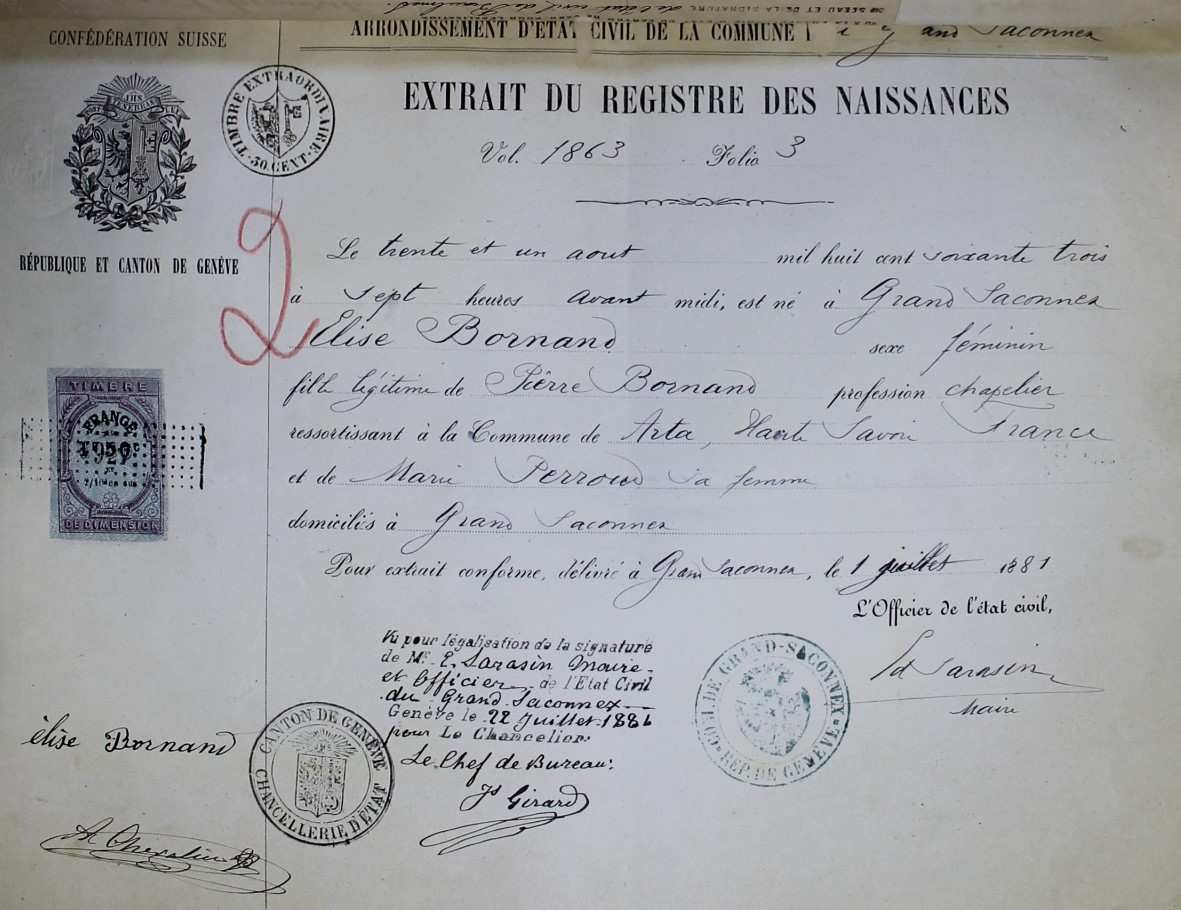 SCEAU ET DE LA SIGNATURE de l'état civil de
CONFÉDÉRATION SUISSE
ARRONDISSEMENT D'ÉTAT CIVIL DE LA COMMUNE and Saconnex
EXTRAIT DU REGISTRE DES NAISSANCES
Vol. 1863 Folio 3
TIMBRE EXTRAORDINAIRE
50. CENT.
RÉPUBLIQUE ET CANTON DE GENÈVE
2
Le trente et un aout mil huit cent soixante trois
à sept heures avant midi, est né à Grand Saconnex
Elise Bornand sexe féminin
fille légitime de Pierre Bornand profession chapelier
ressortissant à la Commune de Arta, Haute Savoie France
et de Marie Perroud sa femme
domiciliés à Grand Saconnex
Pour extrait conforme, délivré à Grand Saconnex, le 1 juillet 1881
L'Officier de l'état civil,
Ed Sarasin
Maire
TIMBRE
FRANCE
DE DIMENSION
Vu pour légalisation de la signature
de Mr. E. Sarasin Maire
et Officier de l'Etat Civil
du Grand Saconnex
Genève le 22 Juillet 1881
pour Le Chancelier
Le Chef de Bureau:
Js Girard
COM. DE GRAND-SACONNEX
REP. DE GENÈVE
CANTON DE GENÈVE
CHANCELLERIE D'ÉTAT
élise Bornand